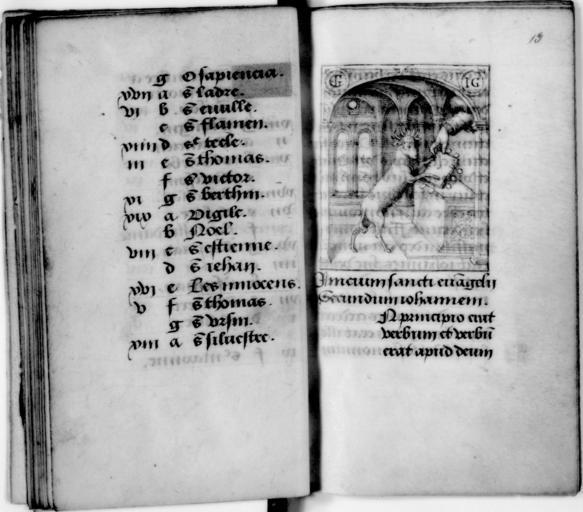 g O sapiencia.
xvii a s̄ ladre.
vi b s̄ eville.
c s̄ flamen.
xiiii d sᵉ tecle.
iii e s̄ thomas.
f s̄ victor.
xi g s̄ berthin.
xix a Vigile.
b Noel.
viii c s̄ estienne.
d s̄ iehan.
xvi e Les innocens.
v f s̄ thomas.
g s̄ ursin.
xiii a s̄ silvestre.
13
G IG
Inicium sancti evāgelii
Secundum iohannem.
N principio erat
verbum et verbū
erat apud deum